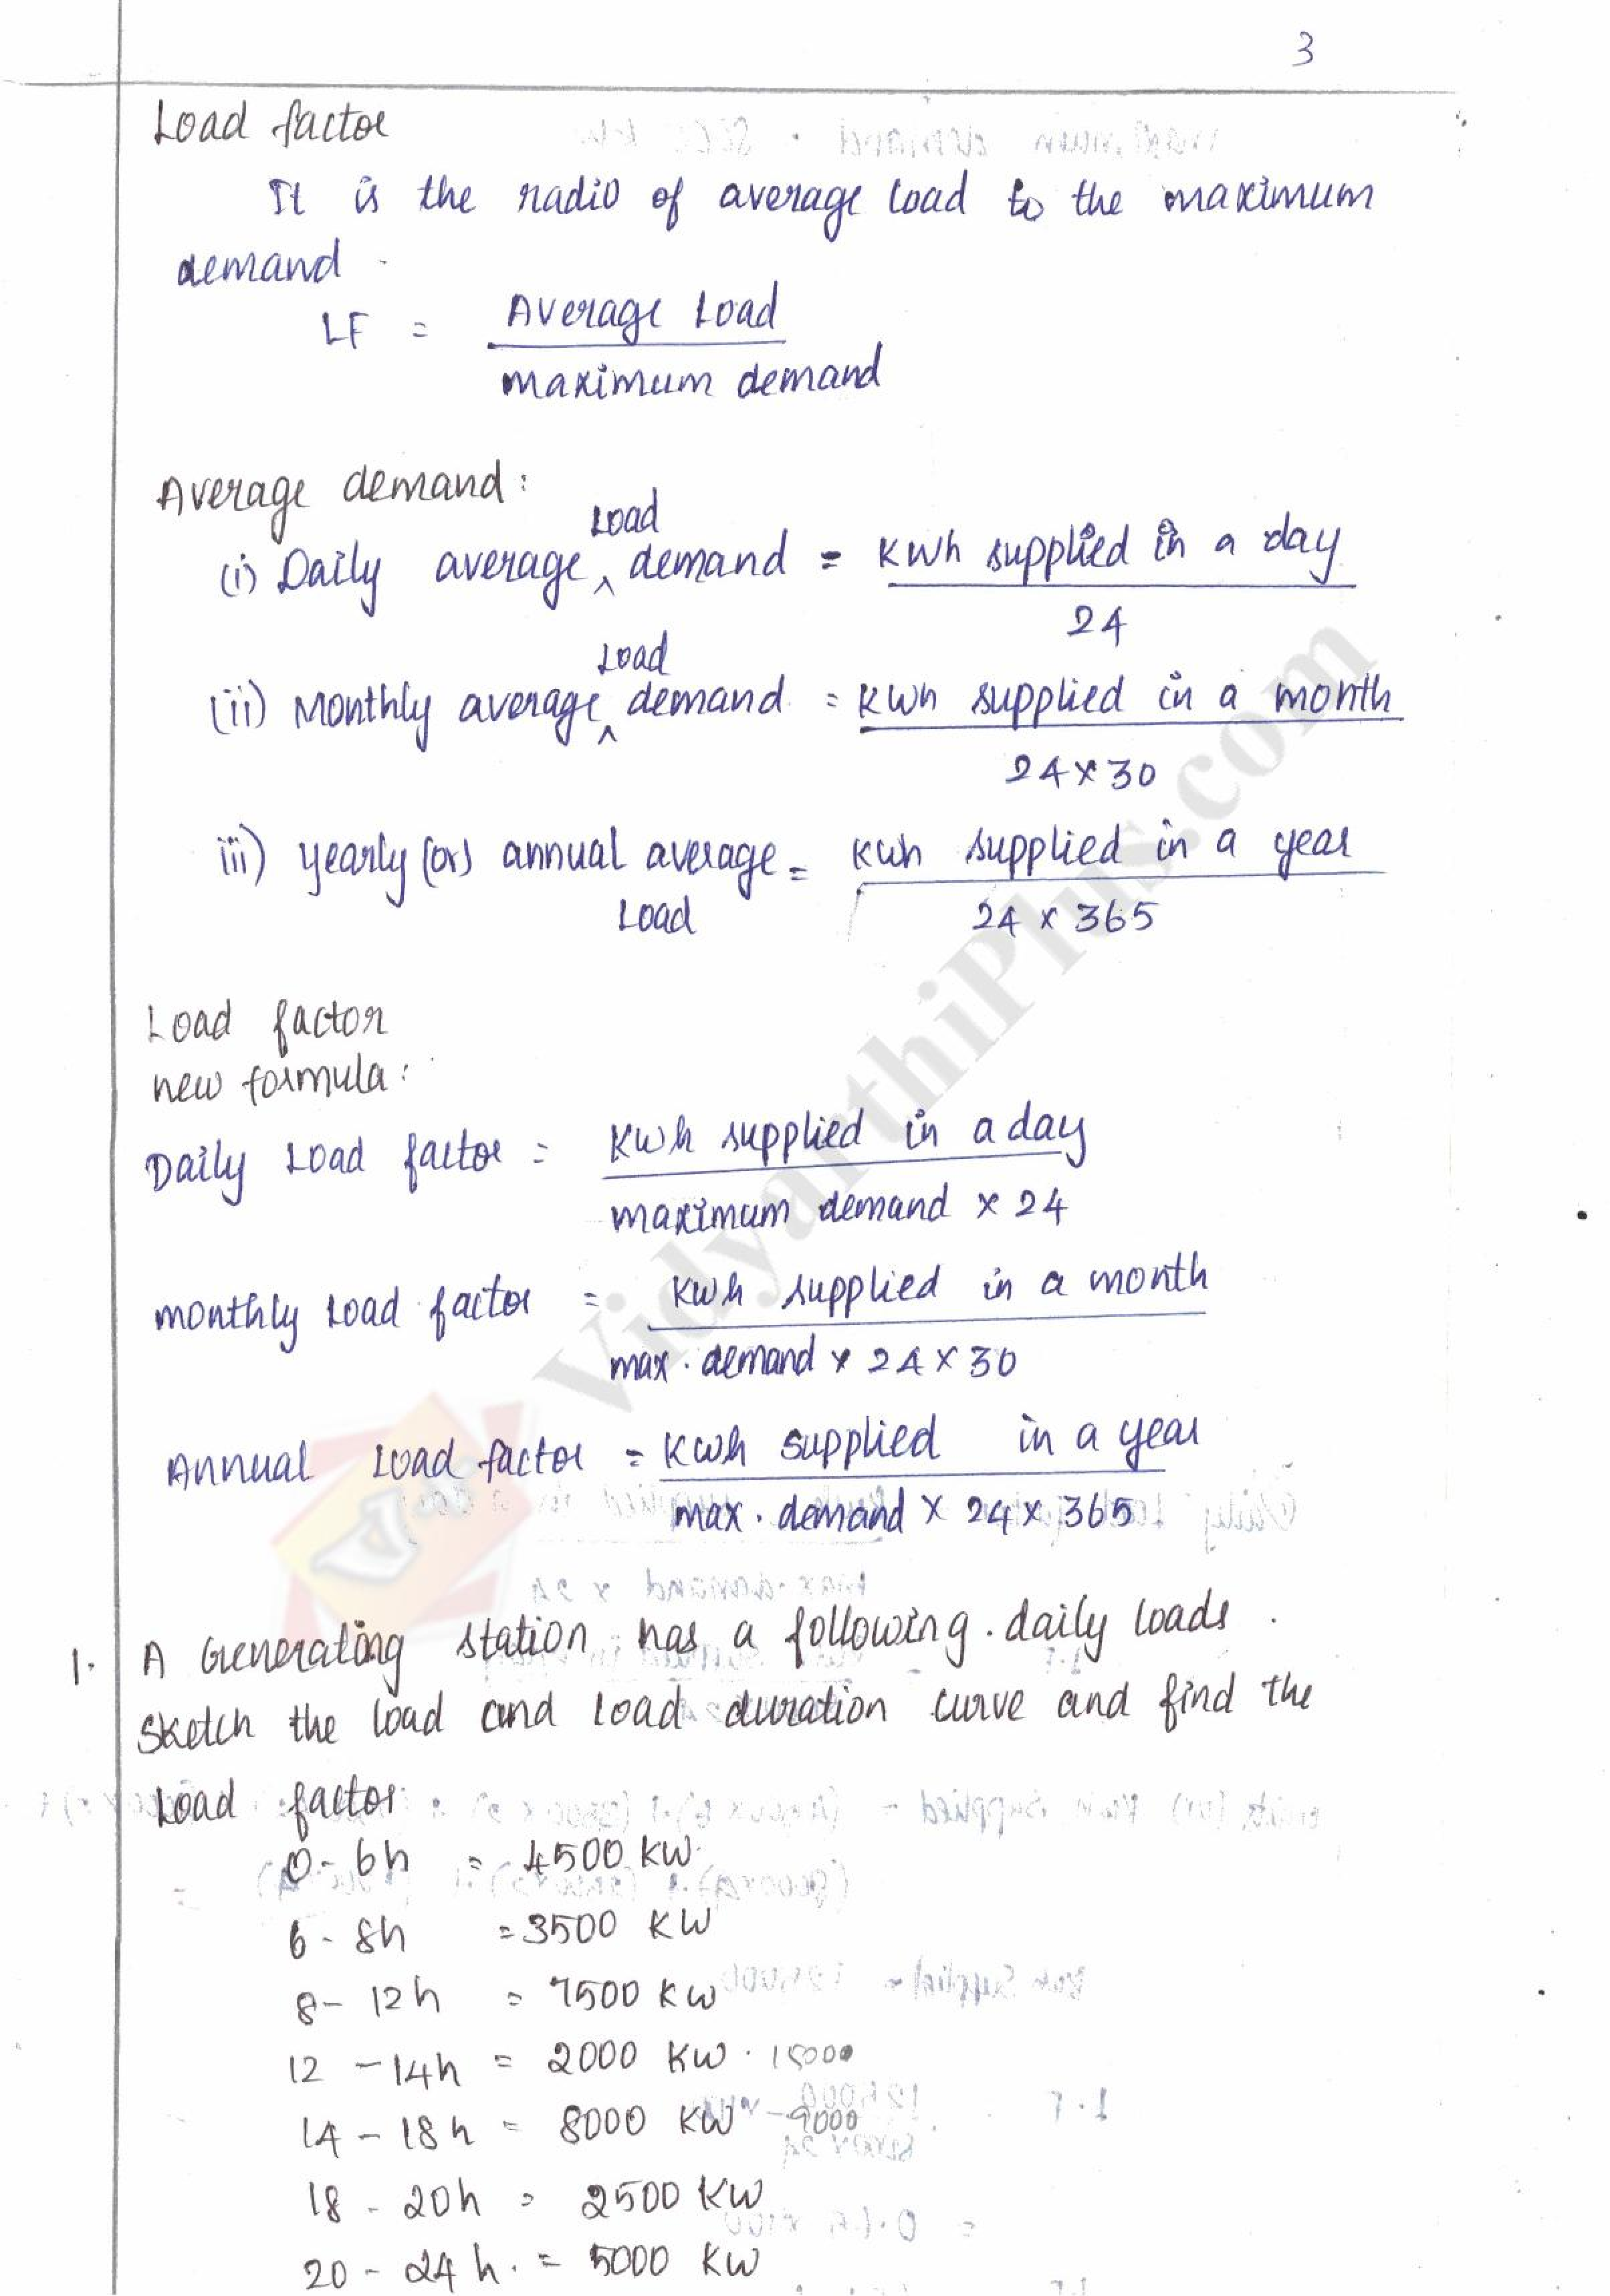 3
Load factor
It is the radio of average load to the maximum
demand.
LF = Average Load
maximum demand
Average demand:
Load
(i) Daily average ^ demand = KWh supplied in a day
24
Load
(ii) Monthly average ^ demand = KWh supplied in a month
24 x 30
iii) yearly (or) annual average = KWh supplied in a year
Load 24 x 365
Load factor
new formula:
Daily Load factor = KWh supplied in a day
maximum demand x 24
monthly Load factor = KWh supplied in a month
max. demand x 24 x 30
Annual Load factor = KWh supplied in a year
max. demand x 24 x 365
1. A Generating station has a following. daily loads.
Sketch the load and load duration curve and find the
Load factor
0 - 6h = 4500 KW
6 - 8h = 3500 KW
8 - 12h = 7500 KW
12 - 14h = 2000 KW.
14 - 18h = 8000 KW - 9000
18 - 20h = 2500 KW
20 - 24h. = 5000 KW
VidyarthiPlus.com